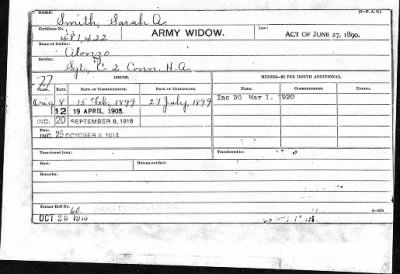 Name: (3-P.A.E.)
Smith, Sarah A.
Certificate No.: ARMY WIDOW. Law: ACT OF JUNE 27, 1890.
481,422
Name of Soldier:
Alonzo
Service:
Sgt. C 2 Conn. H.A.
27 ISSUES. MINORS—$2 PER MONTH ADDITIONAL.
CLASS. RATE. DATE OF COMMENCEMENT. DATE OF CERTIFICATE. NAME. COMMENCEMENT. ENDING.
Orig 8 15 Feb, 1899 27 July, 1899 Inc 30 May 1, 1920
12 19 APRIL, 1908.
INC. 20 SEPTEMBER 8, 1916
INC 25 OCTOBER 6, 1917
Transferred from: Transferred to:
Died: Bureau notified:
Remarks:
Former Roll No. 60 6—609
OCT 26